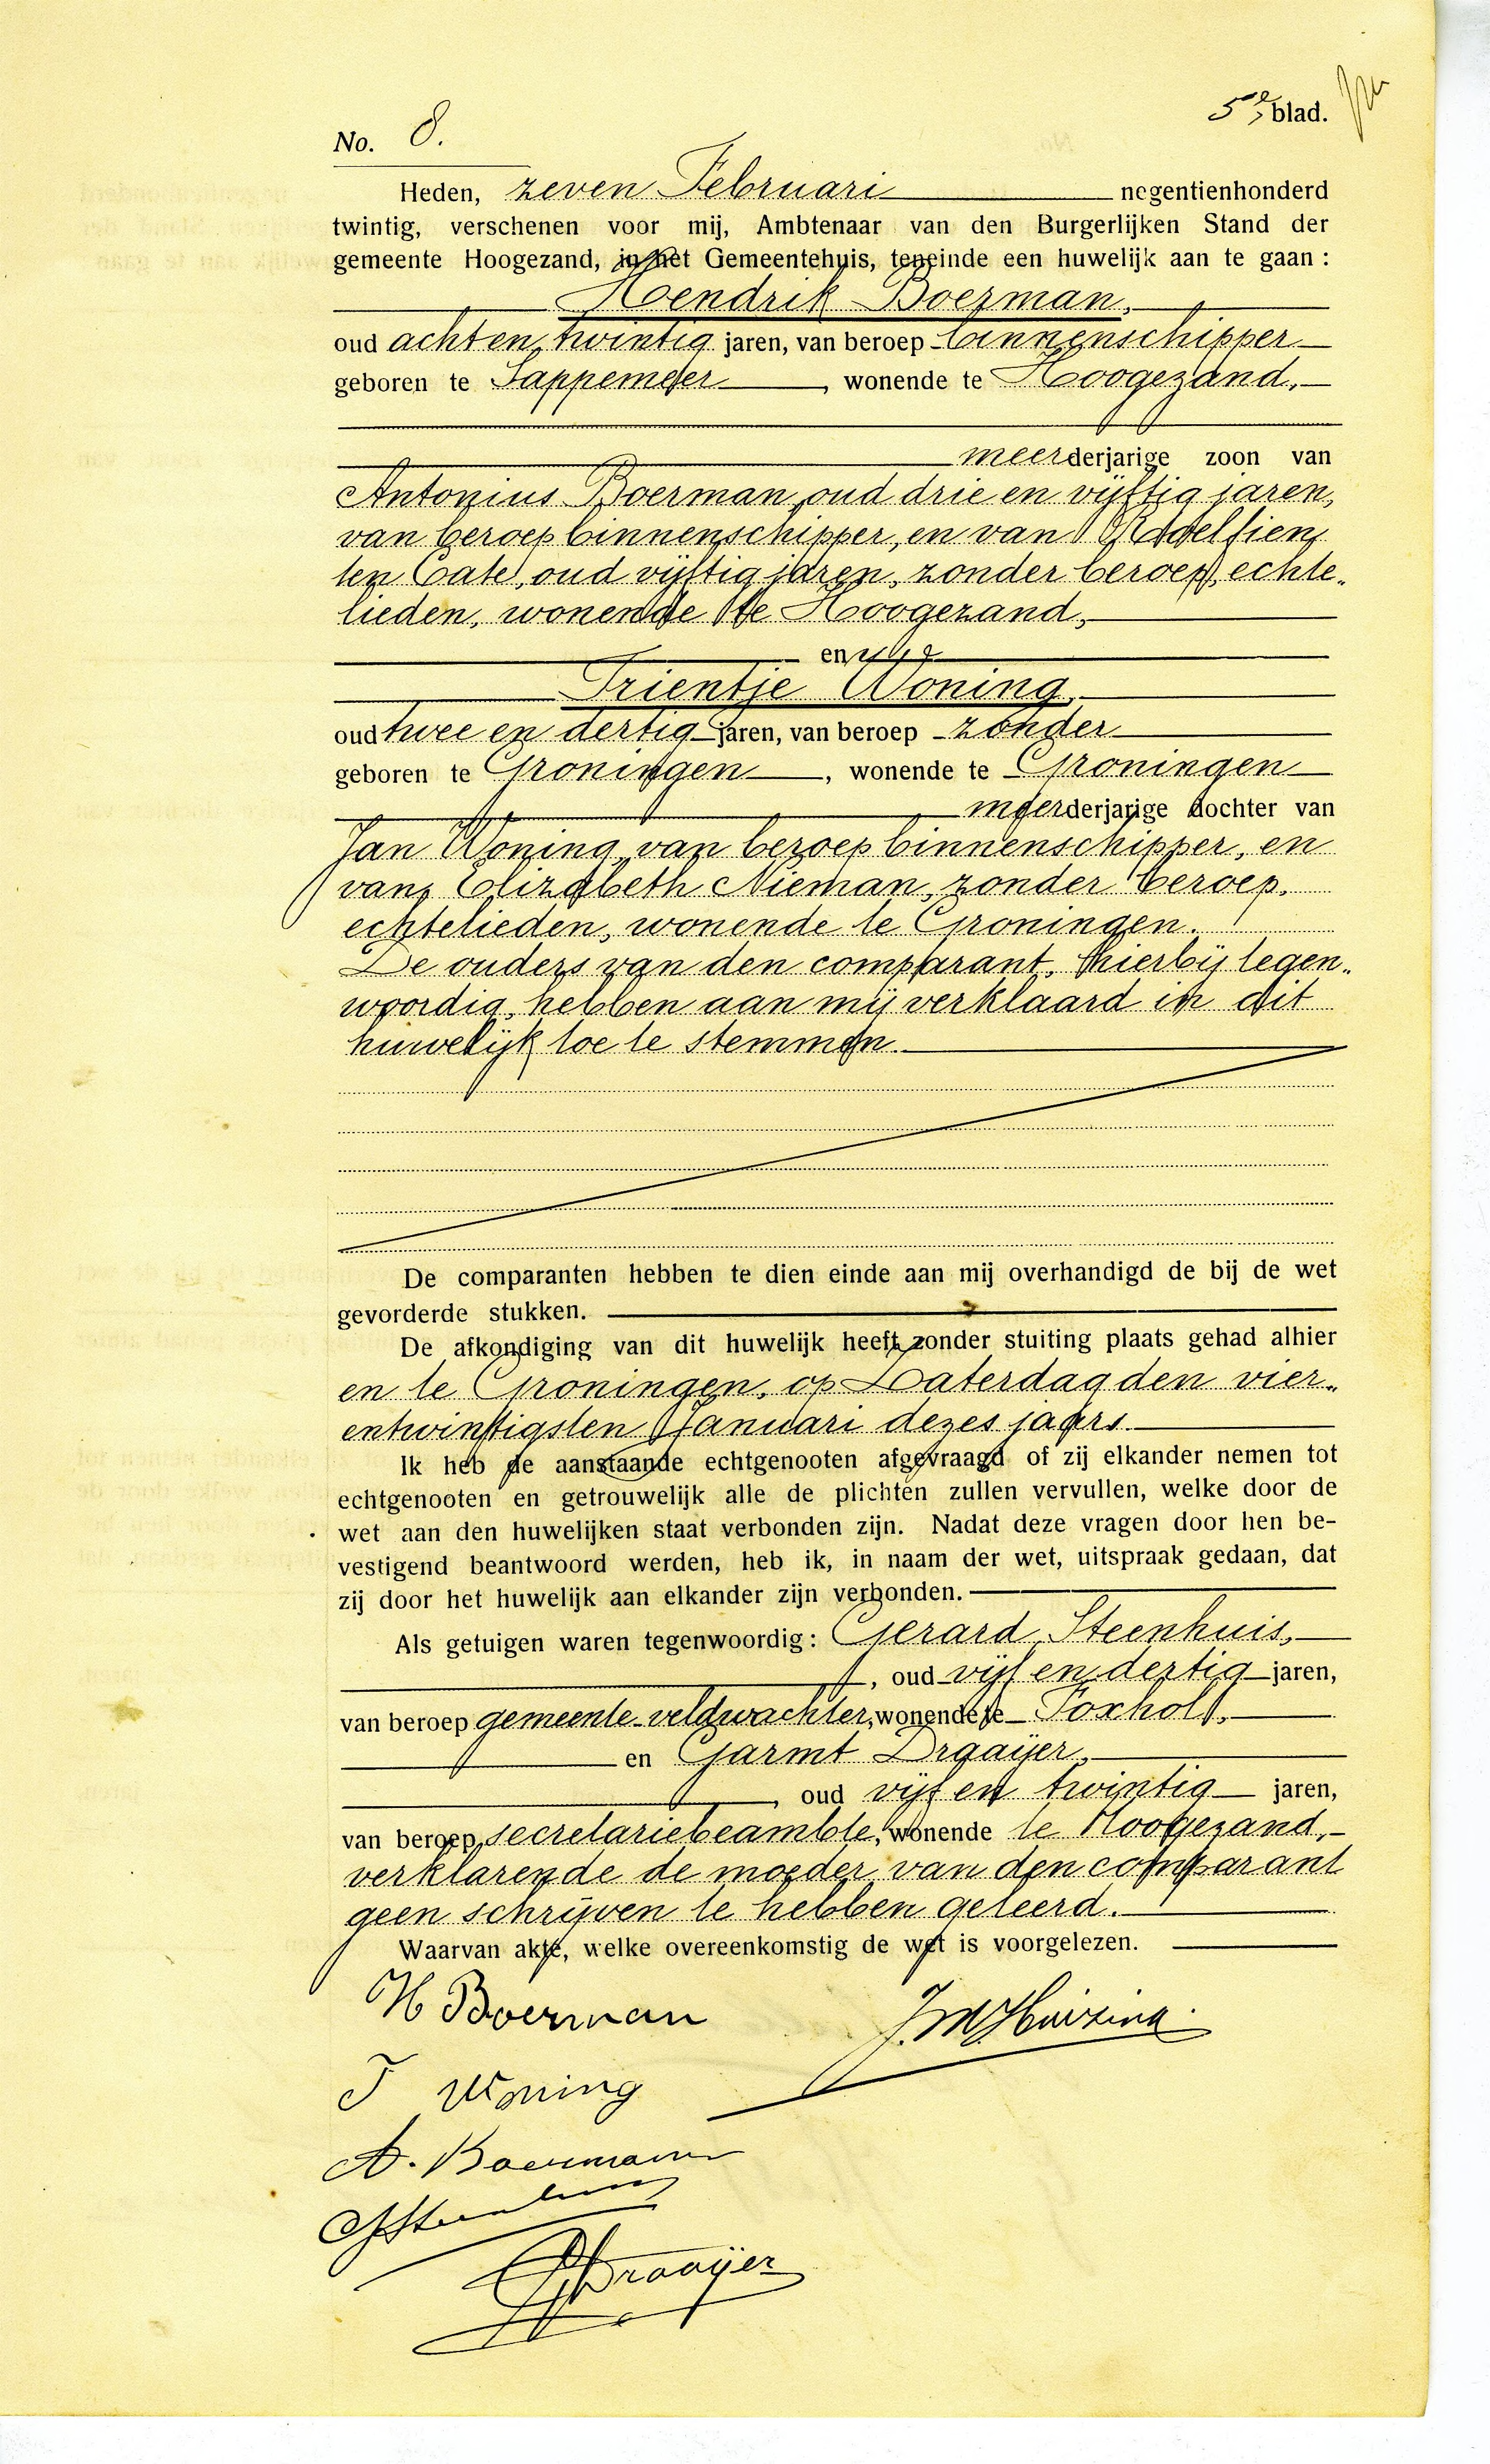 5e blad.
No. 8.
Heden, zeven Februari negentienhonderd
twintig, verschenen voor mij, Ambtenaar van den Burgerlijken Stand der
gemeente Hoogezand, in het Gemeentehuis, teneinde een huwelijk aan te gaan:
Hendrik Boerman,
oud acht en twintig jaren, van beroep binnenschipper
geboren te Sappemeer, wonende te Hoogezand,
meerderjarige zoon van
Antonius Boerman, oud drie en vijftig jaren,
van beroep binnenschipper, en van Roelfien
ten Cate, oud vijftig jaren, zonder beroep, echte„
lieden, wonende te Hoogezand,
en
Trientje Woning,
oud twee en dertig jaren, van beroep zonder
geboren te Groningen, wonende te Groningen
meerderjarige dochter van
Jan Woning, van beroep binnenschipper, en
van Elizabeth Nieman, zonder beroep,
echtelieden, wonende te Groningen.
De ouders van den comparant, hierbij tegen„
woordig, hebben aan mij verklaard in dit
huwelijk toe te stemmen.
De comparanten hebben te dien einde aan mij overhandigd de bij de wet
gevorderde stukken.
De afkondiging van dit huwelijk heeft zonder stuiting plaats gehad alhier
en te Groningen, op Zaterdag den vier„
entwintigsten Januari dezes jaars.
Ik heb de aanstaande echtgenooten afgevraagd of zij elkander nemen tot
echtgenooten en getrouwelijk alle de plichten zullen vervullen, welke door de
wet aan den huwelijken staat verbonden zijn. Nadat deze vragen door hen be-
vestigend beantwoord werden, heb ik, in naam der wet, uitspraak gedaan, dat
zij door het huwelijk aan elkander zijn verbonden.
Als getuigen waren tegenwoordig: Gerard Steenhuis,
, oud vijf en dertig jaren,
van beroep gemeente-veldwachter, wonende te Foxhol,
en Garmt Draaijer,
, oud vijf en twintig jaren,
van beroep secretariebeambte, wonende te Hoogezand,
verklarende de moeder van den comparant
geen schrijven te hebben geleerd.
Waarvan akte, welke overeenkomstig de wet is voorgelezen.
H Boerman
J.M. Huizing
T Woning
A. Boerman
G Steenhuis
G Draaijer